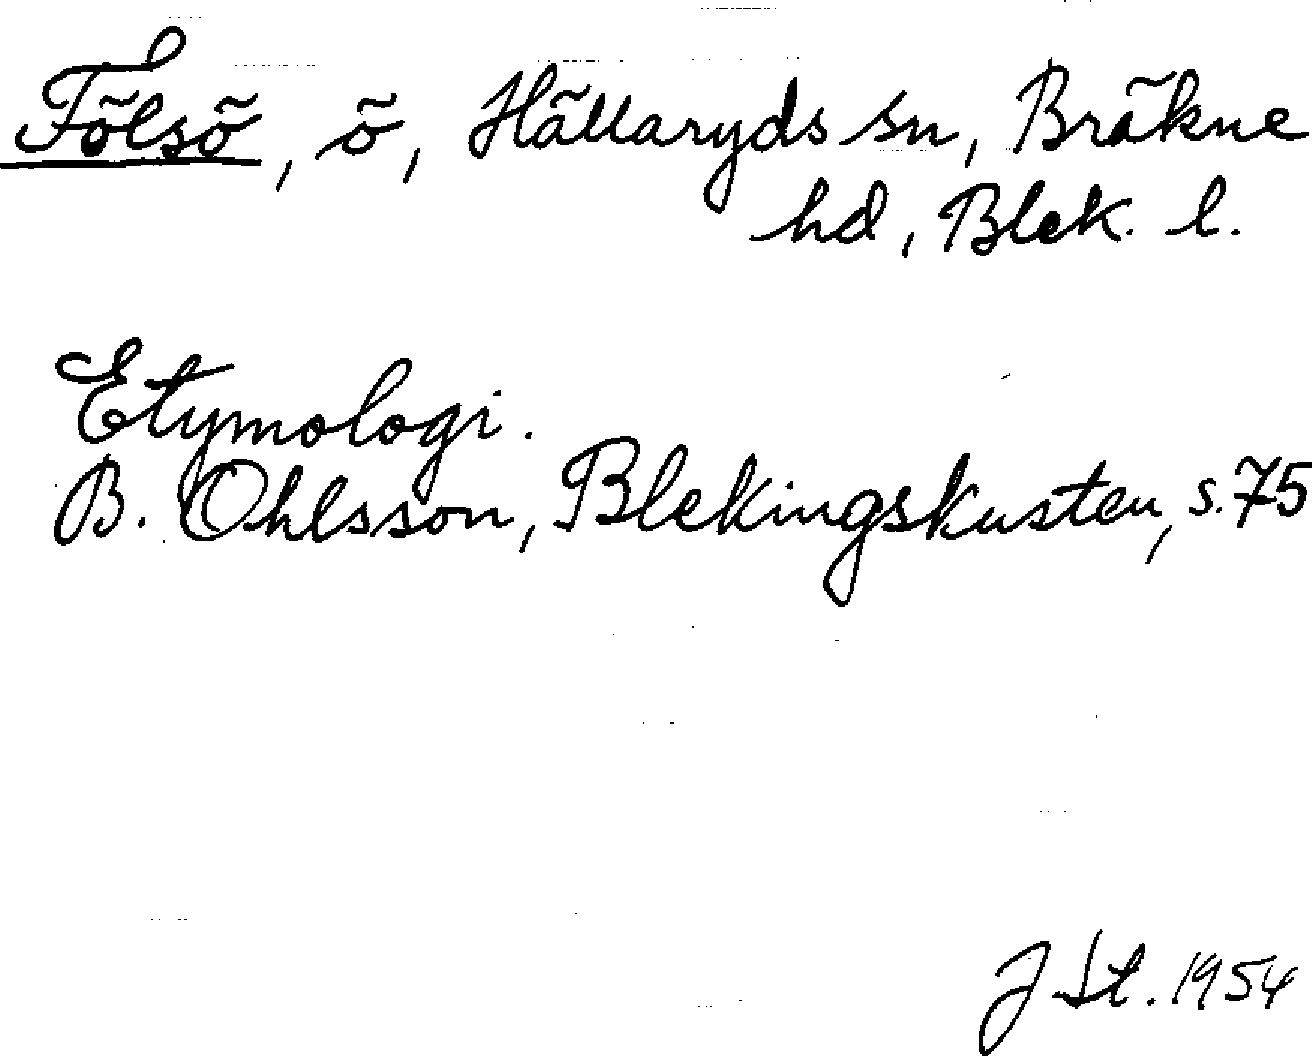 Fölsö, ö, Hällaryds sn, Bräkne
hd, Blek. l.
Etymologi.
B. Ohlsson, Blekingskusten, s. 75
J St. 1954